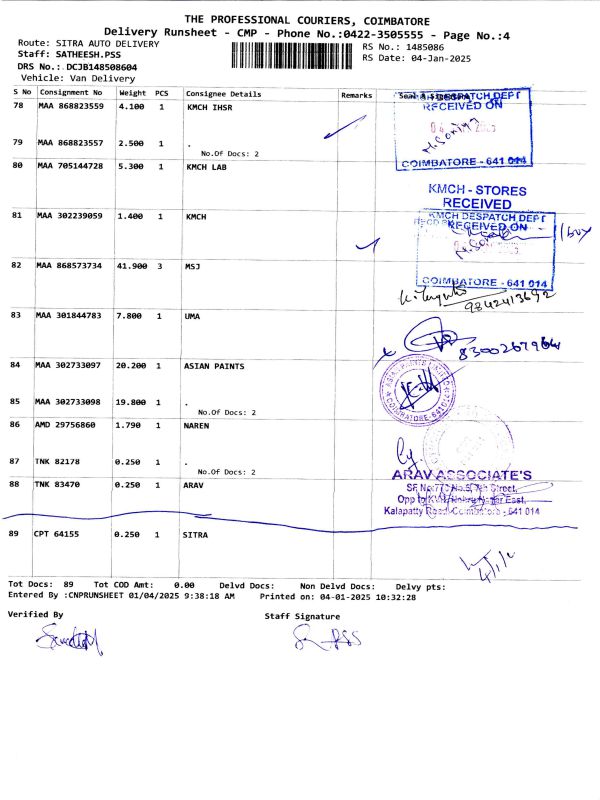 THE PROFESSIONAL COURIERS, COIMBATORE
Delivery Runsheet - CMP - Phone No.:0422-3505555 - Page No.:4
Route: SITRA AUTO DELIVERY
RS No.: 1485086
Staff: SATHEESH.PSS
RS Date: 04-Jan-2025
DRS No.: DCJB148508604
Vehicle: Van Delivery
S No Consignment No Weight PCS Consignee Details Remarks
78 MAA 868823559 4.100 1 KMCH IHSR
DESPATCH DEPT
RECEIVED ON
79 MAA 868823557 2.500 1 .
No.Of Docs: 2
COIMBATORE - 641 014
80 MAA 705144728 5.300 1 KMCH LAB
KMCH - STORES
RECEIVED
81 MAA 302239059 1.400 1 KMCH
KMCH DESPATCH DEPT
RECEIVED ON
82 MAA 868573734 41.900 3 MSJ
COIMBATORE - 641 014
9842413692
83 MAA 301844783 7.800 1 UMA
8300267964
84 MAA 302733097 20.200 1 ASIAN PAINTS
85 MAA 302733098 19.800 1 .
No.Of Docs: 2
86 AMD 29756860 1.790 1 NAREN
87 TNK 82178 0.250 1 .
No.Of Docs: 2
88 TNK 83470 0.250 1 ARAV
ARAV ASSOCIATE'S
Street,
Opp to
East,
Kalapatty Road, Coimbatore - 641 014
89 CPT 64155 0.250 1 SITRA
Tot Docs: 89 Tot COD Amt: 0.00 Delvd Docs: Non Delvd Docs: Delvy pts:
Entered By :CNPRUNSHEET 01/04/2025 9:38:18 AM Printed on: 04-01-2025 10:32:28
Verified By Staff Signature